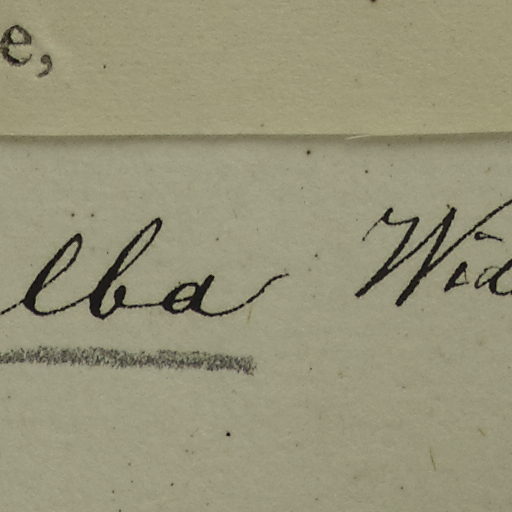 e,
lba Wid